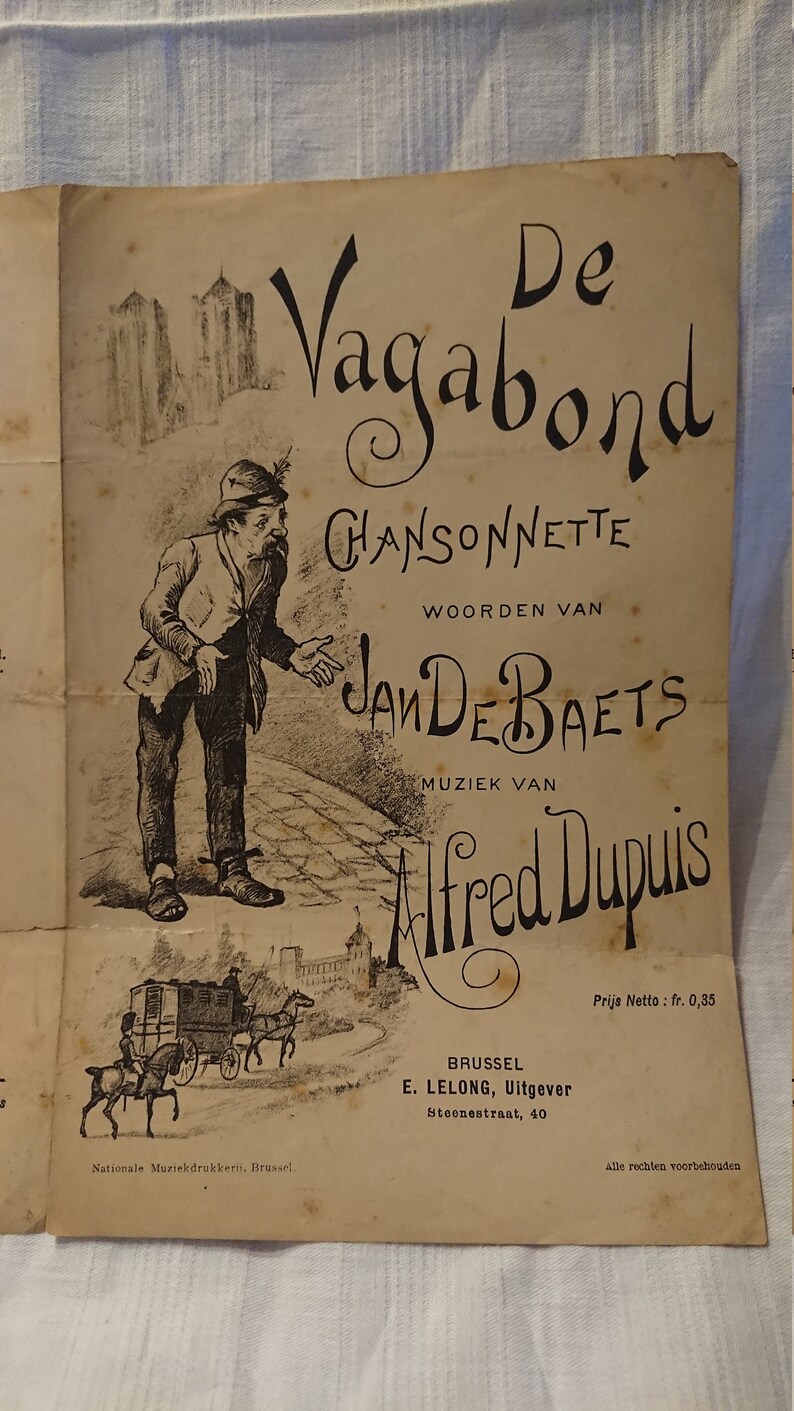 De
Vagabond
CHANSONNETTE
WOORDEN VAN
JAN DE BAETS
MUZIEK VAN
Alfred Dupuis
Prijs Netto : fr. 0,35
BRUSSEL
E. LELONG, Uitgever
Steenestraat, 40
Nationale Muziekdrukkerij, Brussel.
Alle rechten voorbehouden